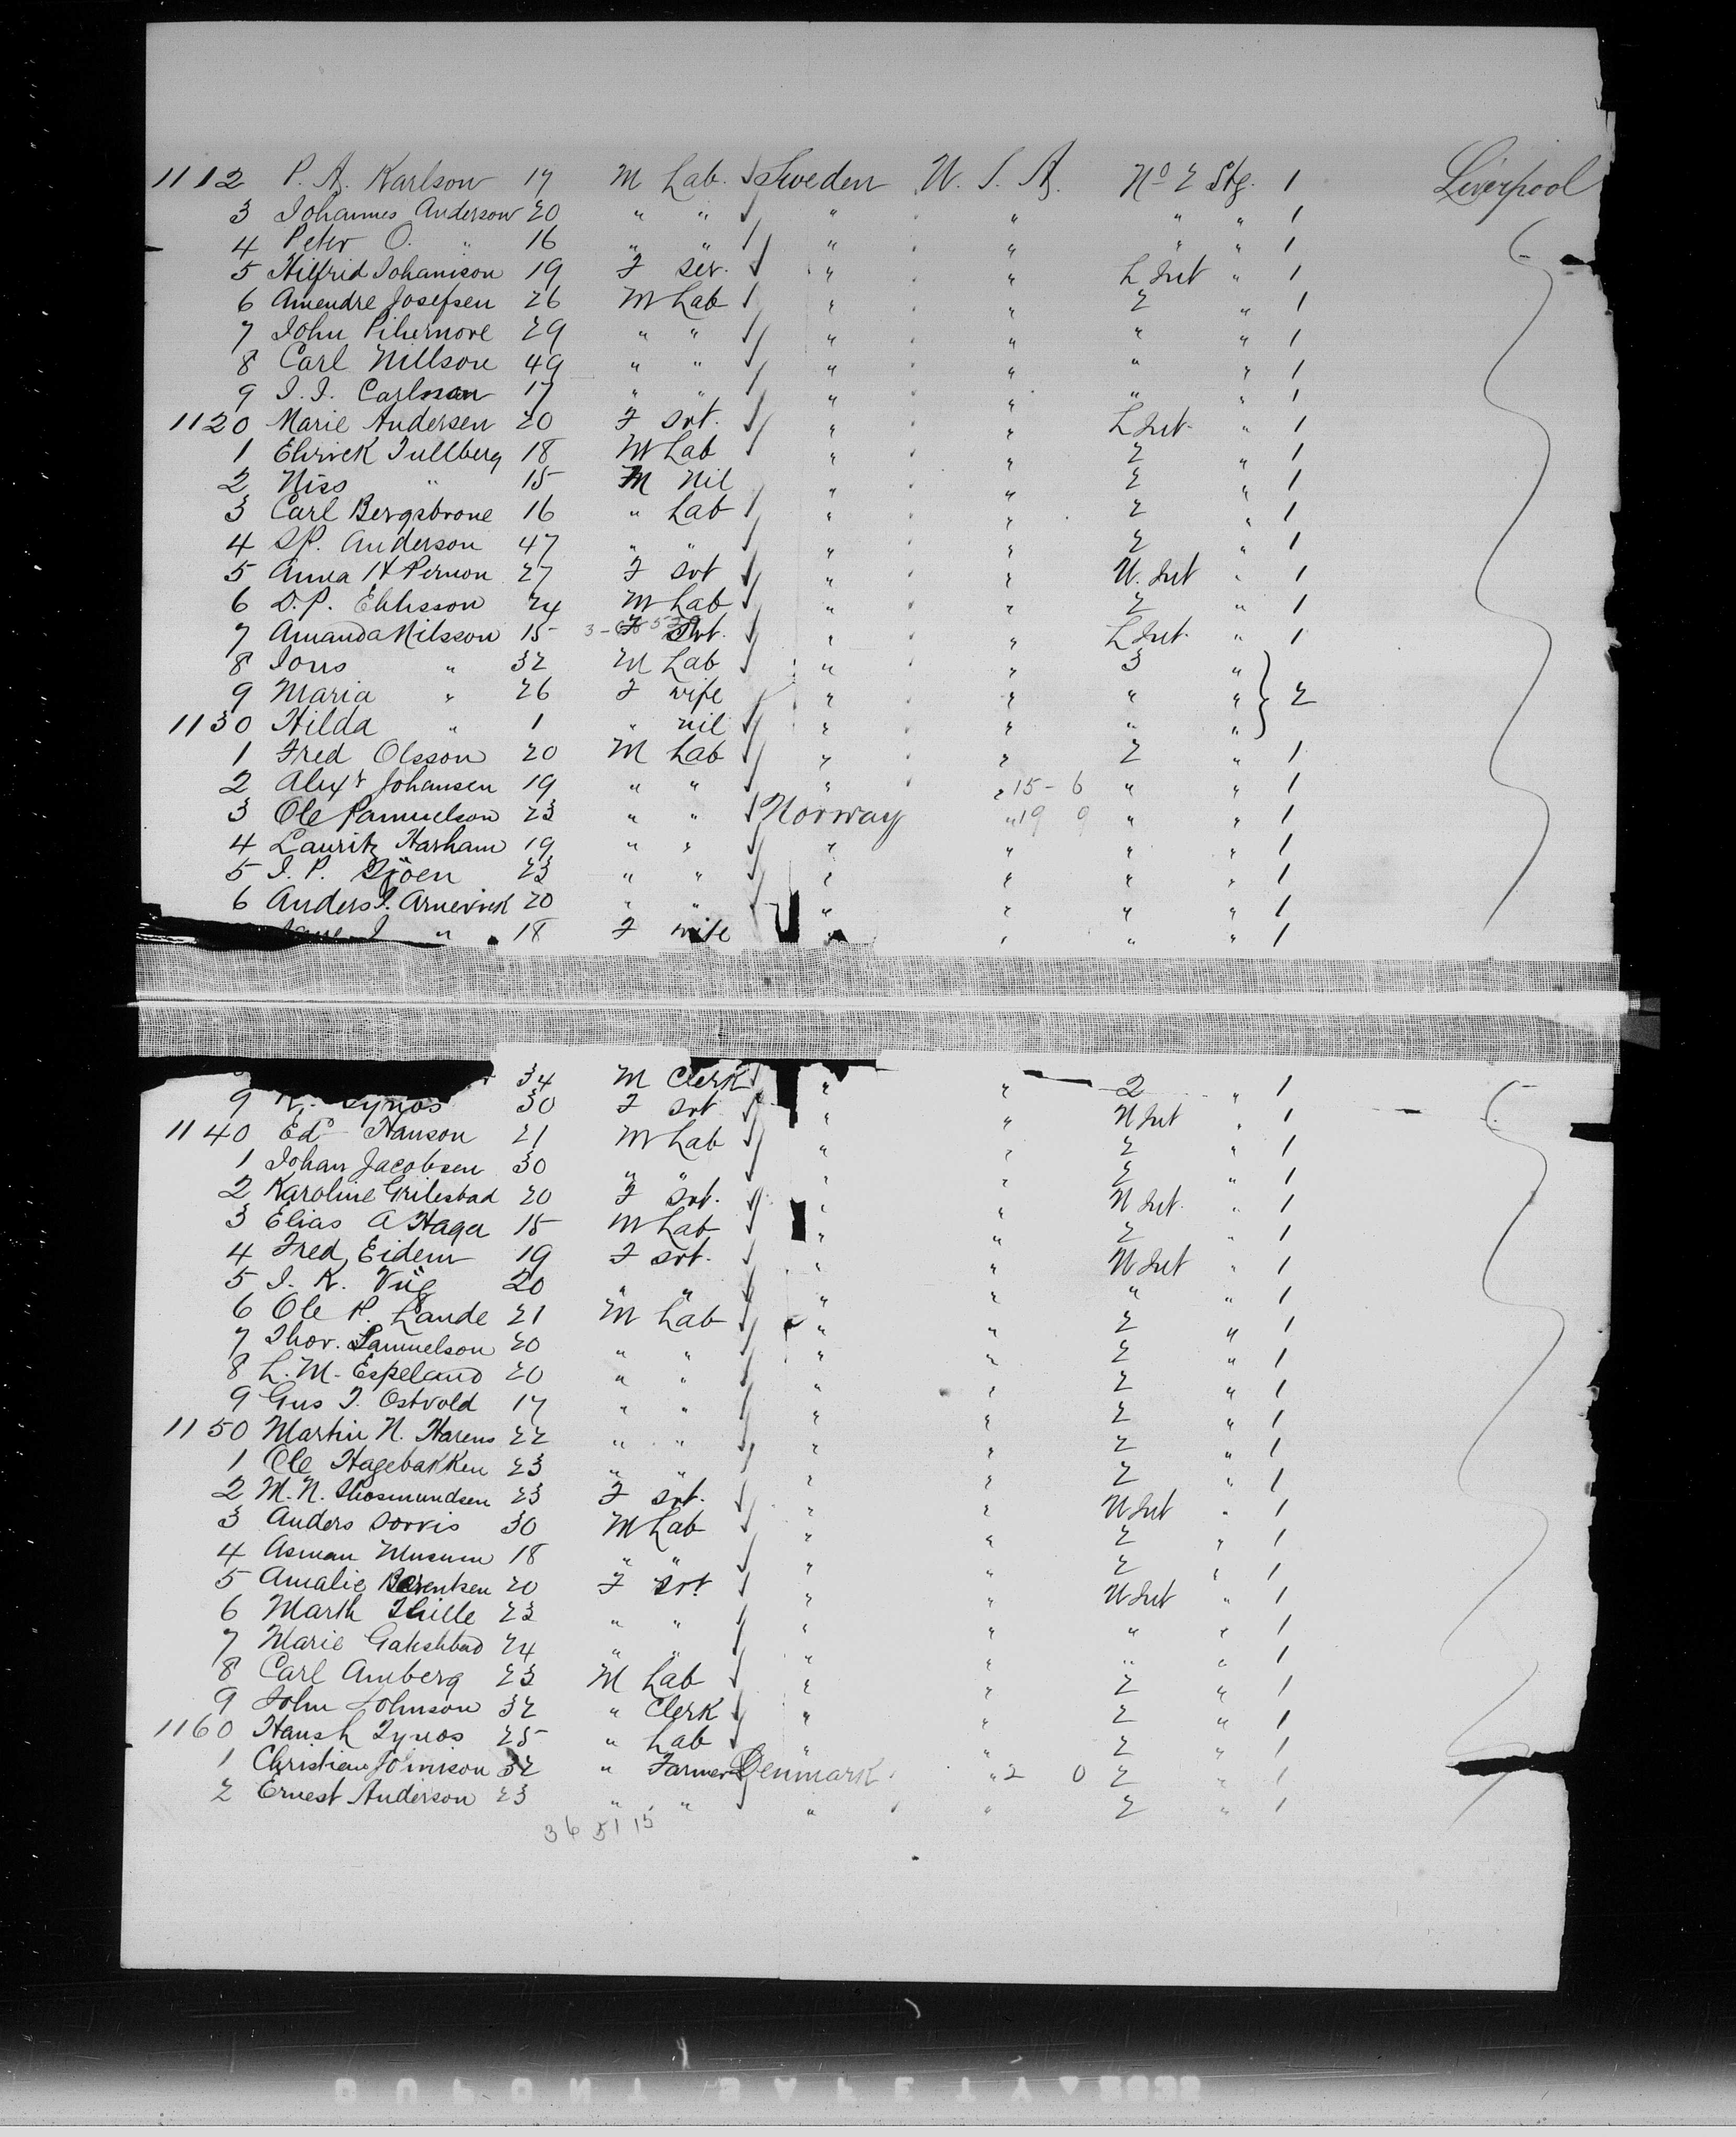 1112 P. A. Karlson 17 M Lab. Sweden U. S. A. No 2 Stg. 1 Liverpool
3 Johannes Anderson 20 " " " " " " 1
4 Peter O. " 16 " " " " " " 1
5 Hilfrid Johanison 19 F Ser. " " L Int " 1
6 Amendre Josefsen 26 M Lab " " 2 " 1
7 John 29 " " " " " " 1
8 Carl Nillson 49 " " " " " " 1
9 J. J. Carlson 17 " " " " " " 1
1120 Marie Andersen 20 F Svt. " " L Int. " 1
1 Tullberg 18 M Lab " " 2 " 1
2 Niss " 15 M Nil " " 2 " 1
3 Carl 16 " Lab " " 2 " 1
4 S.P. Anderson 47 " " " " 2 " 1
5 Anna 27 F Svt " " U. Int " 1
6 D.P. 24 M Lab " " 2 " 1
7 Amanda Nilsson 15 F Svt. " " L Int. " 1
8 Jons " 32 M Lab " " 3 "
9 Maria " 26 F wife " " " " 2
1130 Hilda " 1 " nil " " " "
1 Fred Olsson 20 M Lab " " 2 " 1
2 Alexr Johansen 19 " " " " 15-6 " " 1
3 Ole Samuelson 23 " " Norway " 19 9 " " 1
4 Lauritz Harham 19 " " " " " " 1
5 J. P. 23 " " " " " " 1
6 Anders J. 20 " " " " " " 1
" 18 F wife " " " " 1
34 M Clerk " " 2 " 1
9 30 F Svt " " U Int " 1
1140 Edd Hanson 21 M Lab " " 2 " 1
1 Johan Jacobsen 30 " " " " 2 " 1
2 Karoline 20 F Svt. " " U Int. " 1
3 Elias A Haga 15 M Lab " " 2 " 1
4 Fred Eidem 19 F Svt. " " U Int " 1
5 J. K. 20 " " " " " " 1
6 Ole P. Lande 21 M Lab " " 2 " 1
7 Thor. Samuelson 20 " " " " 2 " 1
8 L. M. Espeland 20 " " " " 2 " 1
9 Gus T. Ostvold 17 " " " " 2 " 1
1150 Martin N. 22 " " " " 2 " 1
1 Ole Hagebakken 23 " " " " 2 " 1
2 M. N. 23 F Svt. " " U Int " 1
3 Anders 30 M Lab " " 2 " 1
4 18 " " " " 2 " 1
5 Amalie Berentsen 20 F Svt " " U Int " 1
6 Marth 23 " " " " " " 1
7 Marie 24 " " " " " " 1
8 Carl Amberg 23 M Lab " " 2 " 1
9 John Johnson 32 " Clerk " " 2 " 1
1160 25 " Lab " " 2 " 1
1 Christian 32 " Farmer Denmark " 2 0 2 " 1
2 Ernest Anderson 23 " " " " 2 " 1
36 51 15
DUPONT SAFETY